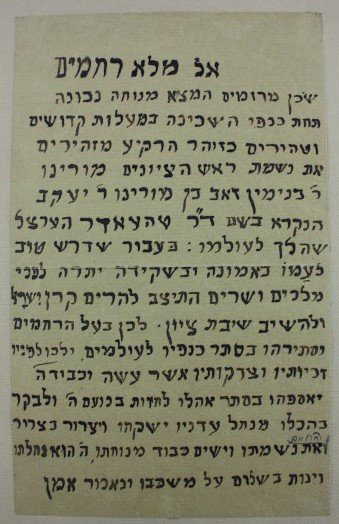 אל מלא רחמים
שכן מרומים המצא מנוחה נכונה
תחת כנפי השכינה במעלות קדושים
וטהורים כזוהר הרקיע מזהירים
את נשמת ראש הציונים מורינו
ר' בנימין זאב בן מורינו ר' יעקב
הנקרא בשם ד"ר טהעאדר הערצל
שהלך לעולמו: בעבור שדרש טוב
לעמו באמונה ובשקידה יתרה לפני
מלכים ושרים התיצב להרים קרן ישראל
ולהשיב שיבת ציון. לכן בעל הרחמים
יסתירהו בסתר כנפיו לעולמים
זכיותיו וצדקותיו אשר עשה
יאספהו בסתר אהלו לחזות בנועם ה' ולבקר
בהכלו מנחל עדניו ישקהו ויצרור בצרור החיים
את נשמתו וישים כבוד מנוחתו, ה' הוא נחלתו
וינוח בשלום על משכבו ונאמר אמן